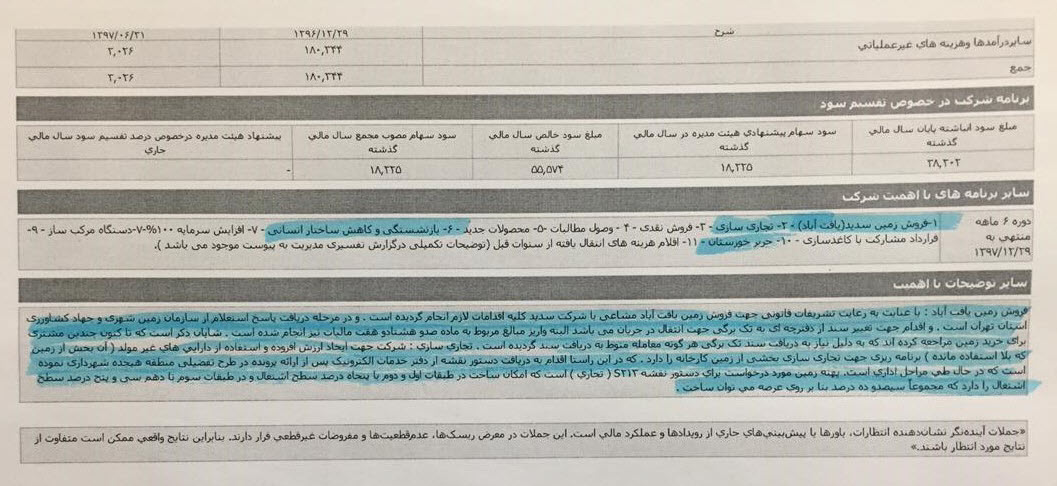 شرح ۱۳۹۶/۱۲/۲۹ ۱۳۹۷/۰۶/۳۱
سایردرآمدها وهزینه های غیرعملیاتی ۱۸۰,۳۴۴ ۳,۰۲۶
جمع ۱۸۰,۳۴۴ ۳,۰۲۶
برنامه شرکت در خصوص تقسیم سود
مبلغ سود انباشته پایان سال مالی گذشته سود سهام پیشنهادی هیئت مدیره در سال مالی گذشته مبلغ سود خالص سال مالی گذشته سود سهام مصوب مجمع سال مالی گذشته پیشنهاد هیئت مدیره درخصوص درصد تقسیم سود سال مالی جاری
۳۸,۲۰۲ ۱۸,۲۲۵ ۵۵,۵۷۴ ۱۸,۲۲۵ -
سایر برنامه های با اهمیت شرکت
دوره ۶ ماهه منتهی به ۱۳۹۷/۱۲/۲۹
۱-فروش زمین سدید(یافت آباد) -۲- تجاری سازی -۳- فروش نقدی -۴ - وصول مطالبات -۵- محصولات جدید -۶- بازنشستگی و کاهش ساختار انسانی -۷- افزایش سرمایه ۱۰۰%-۷-دستگاه مرکب ساز -۹-
قرارداد مشارکت با کاغذسازی -۱۰- حریر خوزستان -۱۱- اقلام هزینه های انتقال یافته از سنوات قبل (توضیحات تکمیلی درگزارش تفسیری مدیریت به پیوست موجود می باشد ).
سایر توضیحات با اهمیت
فروش زمین یافت آباد : با عنایت به رعایت تشریفات قانونی جهت فروش زمین یافت آباد مشاعی با شرکت سدید کلیه اقدامات لازم انجام گردیده است . و در مرحله دریافت پاسخ استعلام از سازمان زمین شهری و جهاد کشاورزی
استان تهران است . و اقدام جهت تغییر سند از دفترچه ای به تک برگی جهت انتقال در جریان می باشد البته واریز مبالغ مربوط به ماده صدو هشتادو هفت مالیات نیز انجام شده است . شایان ذکر است که تا کنون چندین مشتری
برای خرید زمین مراجعه کرده اند که به دلیل نیاز به دریافت سند تک برگی هر گونه معامله منوط به دریافت سند گردیده است . تجاری سازی : شرکت جهت ایجاد ارزش افزوده و استفاده از دارایی های غیر مولد ( آن بخش از زمین
که بلا استفاده مانده ) برنامه ریزی جهت تجاری سازی بخشی از زمین کارخانه را دارد. که در این راستا اقدام به دریافت دستور نقشه از دفتر خدمات الکترونیک پس از ارائه پرونده در طرح تفصیلی منطقه هیجده شهرداری نموده
است که در حال طی مراحل اداری است. پهنه زمین مورد درخواست برای دستور نقشه S۲۱۳ ( تجاری ) است که امکان ساخت در طبقات اول و دوم با پنجاه درصد سطح اشتغال و در طبقات سوم تا دهم سی و پنج درصد سطح
اشتغال را دارد که مجموعاً سیصدو ده درصد بنا بر روی عرصه می توان ساخت
«جملات آینده‌نگر نشان‌دهنده انتظارات، باورها یا پیش‌بینی‌های جاری از رویدادها و عملکرد مالی است. این جملات در معرض ریسک‌ها، عدم‌قطعیت‌ها و مفروضات غیرقطعی قرار دارند. بنابراین نتایج واقعی ممکن است متفاوت از
نتایج مورد انتظار باشند.»